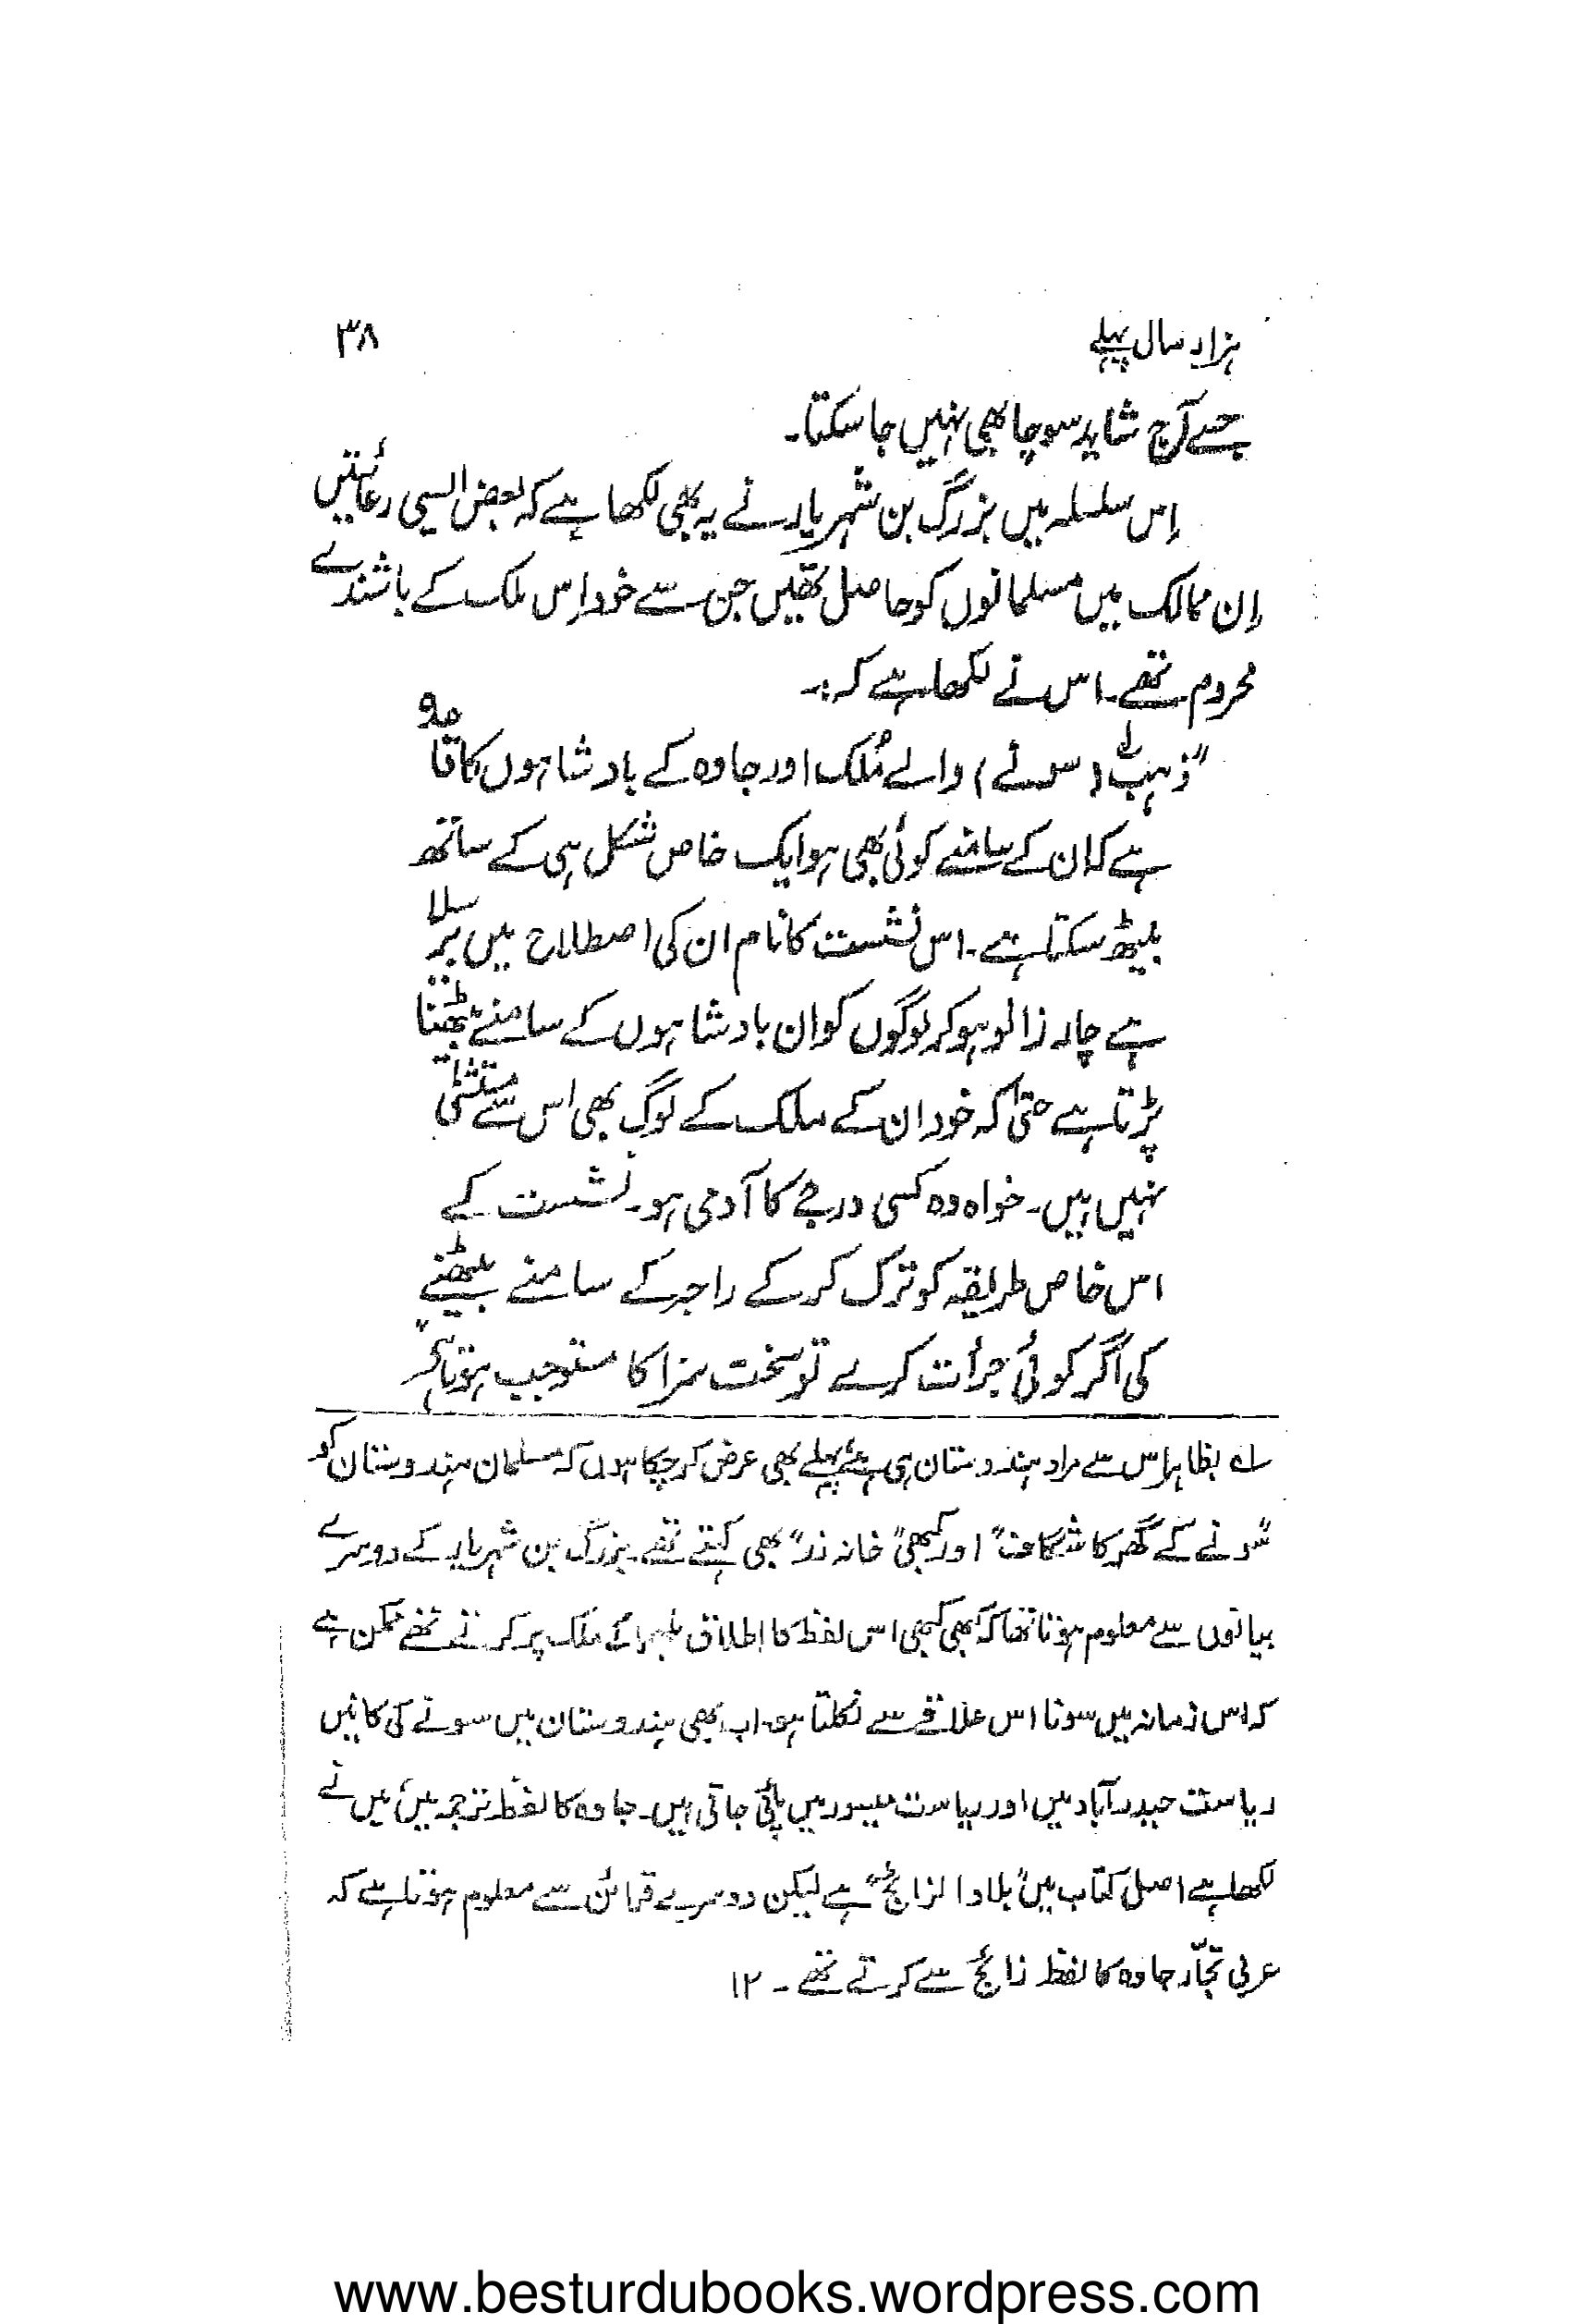 ہزار سال پہلے
۳۸
جسے آج شاید سوچا بھی نہیں جا سکتا۔
اِس سلسلہ میں بزرگ بن شہریار نے یہ بھی لکھا ہے کہ بعض ایسی رعائتیں
اِن ممالک میں مسلمانوں کو حاصل تھیں جن سے خود اِس ملک کے باشندے
محروم تھے۔ اس نے لکھا ہے کہ:۔
"ذہب (سونے) والے مُلک اور جاوہ کے بادشاہوں کا قاعدہ
ہے کہ ان کے سامنے کوئی بھی ہو ایک خاص شکل ہی کے ساتھ
بیٹھ سکتا ہے۔ اس نشست کا نام ان کی اصطلاح میں برسلا
ہے چار زانو ہو کر لوگوں کو ان بادشاہوں کے سامنے بیٹھنا
پڑتا ہے حتیٰ کہ خود ان کے ملک کے لوگ بھی اس سے مستثنیٰ
نہیں ہیں۔ خواہ وہ کسی درجے کا آدمی ہو۔ نشست کے
اس خاص طریقہ کو ترک کر کے راجہ کے سامنے بیٹھنے
کی اگر کوئی جرأت کرے تو سخت سزا کا مستوجب ہوتا ہے"
لہ بظاہر اس سے مراد ہندوستان ہی ہے پہلے بھی عرض کر چکا ہوں کہ مسلمان ہندوستان کو
"سونے کے گھر کا شگاف" اور کبھی "خانہ زر" بھی کہتے تھے۔ بزرگ بن شہریار کے دوسرے
بیانوں سے معلوم ہوتا تھا کہ بھی کبھی اس لفظ کا اطلاق بلہرا کے ملک پر کرتے تھے ممکن ہے
کہ اس زمانہ میں سونا اس علاقے سے نکلتا ہو۔ اب بھی ہندوستان میں سونے کی کانیں
ریاست حیدرآباد میں اور ریاست میسور میں پائی جاتی ہیں۔ جاوہ کا لفظ ترجمہ میں میں نے
لکھا ہے اصل کتاب میں "بلاد الزابج" ہے لیکن دوسرے قرائن سے معلوم ہوتا ہے کہ
عربی تجّار جاوہ کا لفظ زابج سے کرتے تھے ۔ ۱۲
www.besturdubooks.wordpress.com